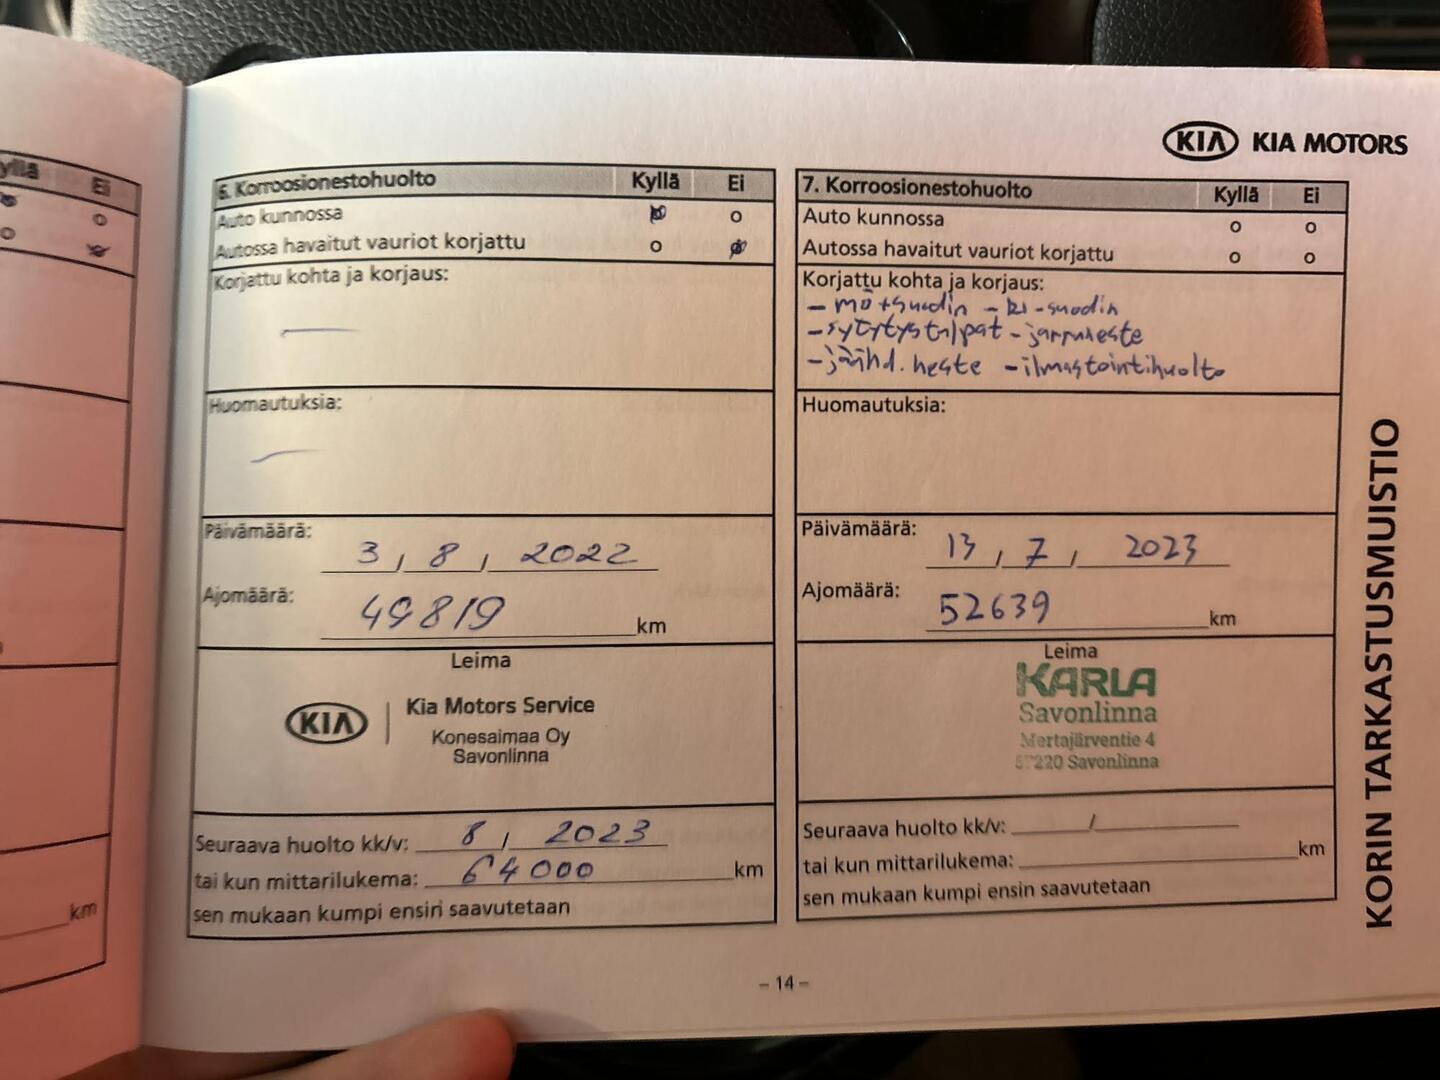 yllä Ei
km
KIA KIA MOTORS
6. Korroosionestohuolto Kyllä Ei
Auto kunnossa
Autossa havaitut vauriot korjattu
Korjattu kohta ja korjaus:
Huomautuksia:
Päivämäärä: 3 / 8 / 2022
Ajomäärä: 49819 km
Leima
KIA Kia Motors Service
Konesaimaa Oy
Savonlinna
Seuraava huolto kk/v: 8 / 2023
tai kun mittarilukema: 64000 km
sen mukaan kumpi ensin saavutetaan
7. Korroosionestohuolto Kyllä Ei
Auto kunnossa
Autossa havaitut vauriot korjattu
Korjattu kohta ja korjaus:
- mö+suodin - ki-suodin
- sytytystulpat - jarruneste
- jäähd. neste - ilmastointihuolto
Huomautuksia:
Päivämäärä: 13 / 7 / 2023
Ajomäärä: 52639 km
Leima
KARLA
Savonlinna
Mertajärventie 4
57220 Savonlinna
Seuraava huolto kk/v: /
tai kun mittarilukema: km
sen mukaan kumpi ensin saavutetaan
KORIN TARKASTUSMUISTIO
– 14 –